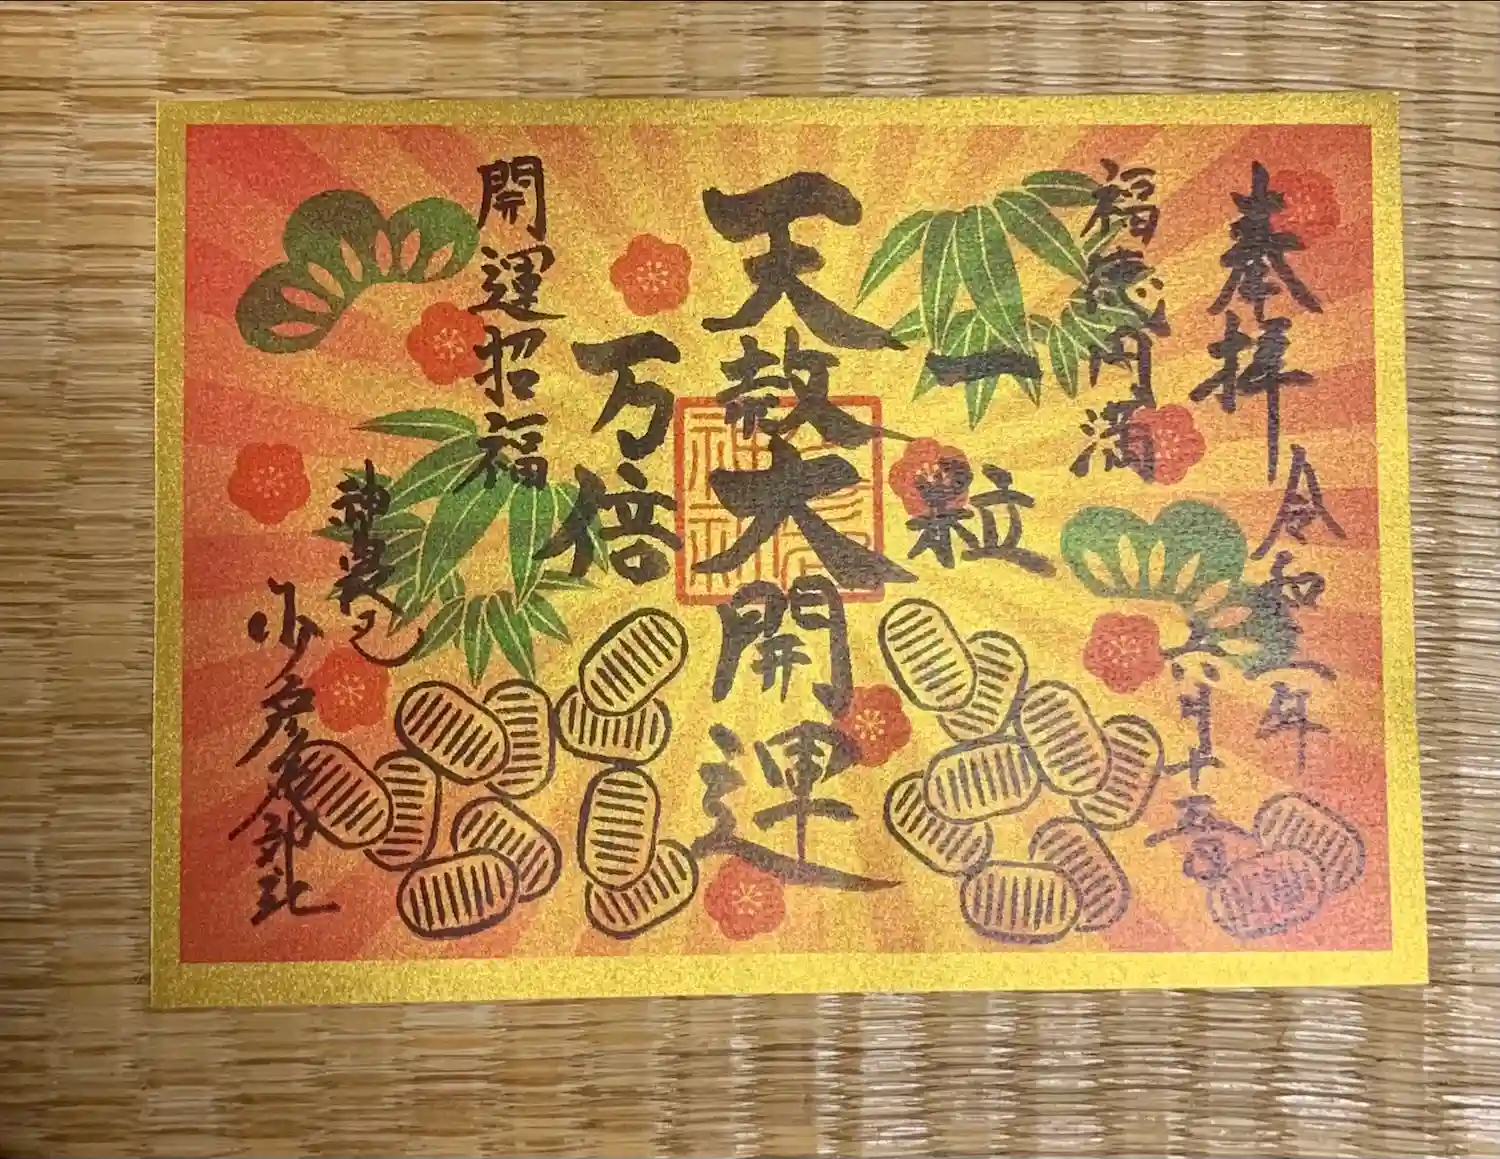 奉拝
令和三年
六月十五日
福徳円満
一粒
天赦大開運
万倍
開運招福
少彦名
神社